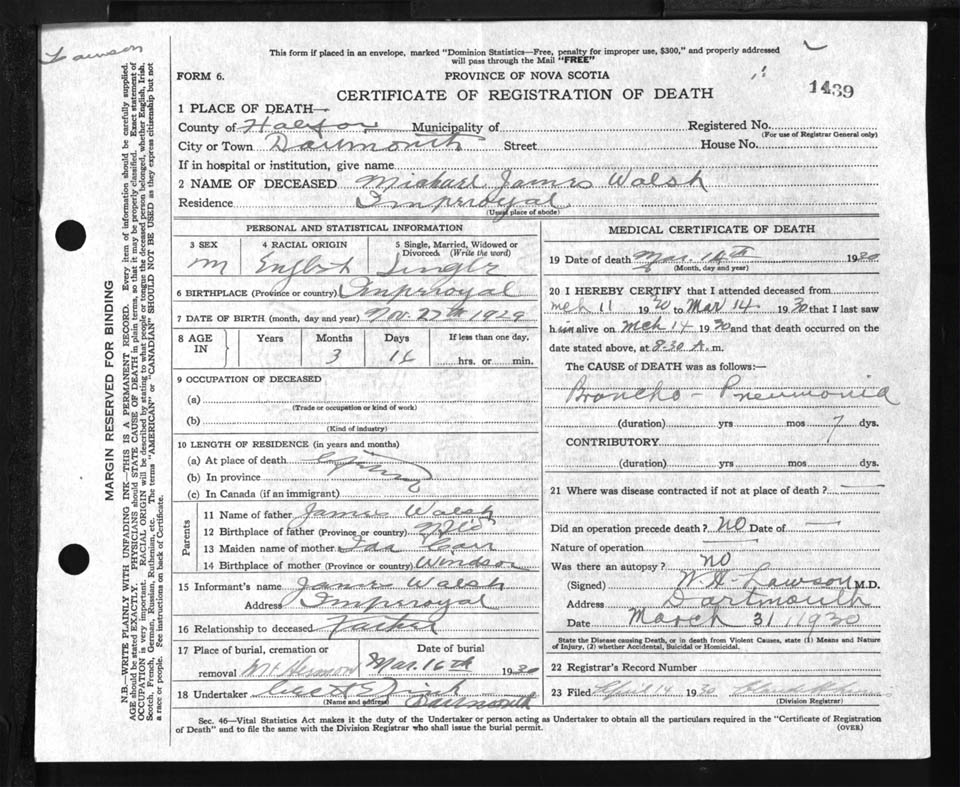 Lawson
This form if placed in an envelope, marked "Dominion Statistics—Free, penalty for improper use, $300," and properly addressed
will pass through the Mail "FREE"
FORM 6.
PROVINCE OF NOVA SCOTIA
CERTIFICATE OF REGISTRATION OF DEATH
1439
1 PLACE OF DEATH—
County of Halifax Municipality of Registered No.
(For use of Registrar General only)
City or Town Dartmouth Street House No.
If in hospital or institution, give name
2 NAME OF DECEASED Michael James Walsh
Residence Imperoyal
(Usual place of abode)
PERSONAL AND STATISTICAL INFORMATION
3 SEX 4 RACIAL ORIGIN 5 Single, Married, Widowed or
Divorced. (Write the word)
M English Single
6 BIRTHPLACE (Province or country) Imperoyal
7 DATE OF BIRTH (month, day and year) Nov. 27th 1929
8 AGE IN Years Months Days If less than one day,
3 hrs. or min.
9 OCCUPATION OF DECEASED
(a)
(Trade or occupation or kind of work)
(b)
(Kind of industry)
10 LENGTH OF RESIDENCE (in years and months)
(a) At place of death
(b) In province
(c) In Canada (if an immigrant)
Parents
11 Name of father James Walsh
12 Birthplace of father (Province or country)
13 Maiden name of mother Ida Carr
14 Birthplace of mother (Province or country) Windsor
15 Informant's name James Walsh
Address Imperoyal
16 Relationship to deceased Father
17 Place of burial, cremation or Date of burial
removal Mt Hermon Mar. 16th 1930
18 Undertaker
(Name and address) Dartmouth
MEDICAL CERTIFICATE OF DEATH
19 Date of death Mar. 14th 1930
(Month, day and year)
20 I HEREBY CERTIFY that I attended deceased from
Mch 11 1930 to Mar 14 1930 that I last saw
him alive on Mch 14 1930 and that death occurred on the
date stated above, at 8.30 A. m.
The CAUSE of DEATH was as follows:—
Broncho - Pneumonia
(duration) yrs mos 7 dys.
CONTRIBUTORY
(duration) yrs mos dys.
21 Where was disease contracted if not at place of death? —
Did an operation precede death? NO Date of —
Nature of operation —
Was there an autopsy? NO
(Signed) W. H. Lawson M.D.
Address Dartmouth
Date March 31, 1930
State the Disease causing Death, or in death from Violent Causes, state (1) Means and Nature
of Injury, (2) whether Accidental, Suicidal or Homicidal.
22 Registrar's Record Number
23 Filed April 14 1930
(Division Registrar)
Sec. 46—Vital Statistics Act makes it the duty of the Undertaker or person acting as Undertaker to obtain all the particulars required in the "Certificate of Registration
of Death" and to file the same with the Division Registrar who shall issue the burial permit. (OVER)
MARGIN RESERVED FOR BINDING
N.B.—WRITE PLAINLY WITH UNFADING INK—THIS IS A PERMANENT RECORD. Every item of information should be carefully supplied.
AGE should be stated EXACTLY. PHYSICIANS should STATE CAUSE OF DEATH in plain terms, so that it may be properly classified. Exact statement of
OCCUPATION is very important. RACIAL ORIGIN will be described by stating to what people or tongue the deceased person belonged, whether English, Irish,
Scotch, French, German, Russian, Ruthenian, etc. The terms "AMERICAN" or "CANADIAN" SHOULD NOT BE USED as they express citizenship but not
a race or people. See instructions on back of Certificate.